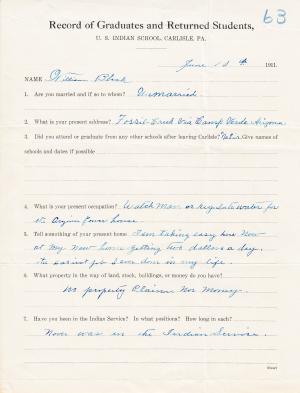 63
Record of Graduates and Returned Students,
U. S. INDIAN SCHOOL, CARLISLE, PA.
June 1 1911.
NAME Black
1. Are you married and if so to whom? Unmarried
2. What is your present address? Fossil Creek Via Camp Verde Arizona
3. Did you attend or graduate from any other schools after leaving Carlisle? Give names
of schools and dates if possible
4. What is your present occupation? Watch Man or regulate water for
the power house.
5. Tell something of your present home I am taking easy here Now
at My New home getting two dollars a day.
the easiest job I ever done in my life.
6. What property in the way of land, stock, buildings, or money do you have?
no property Nor Money.
7. Have you been in the Indian Service? In what positions? How long in each?
Never was in the Indian Service.
(Over)